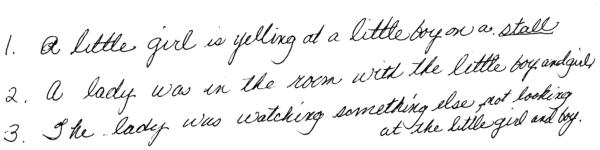 1. a little girl is yelling at a little boy on a stall
2. a lady was in the room with the little boy and girl
3. The lady was watching something else, not looking
at the little girl and boy.